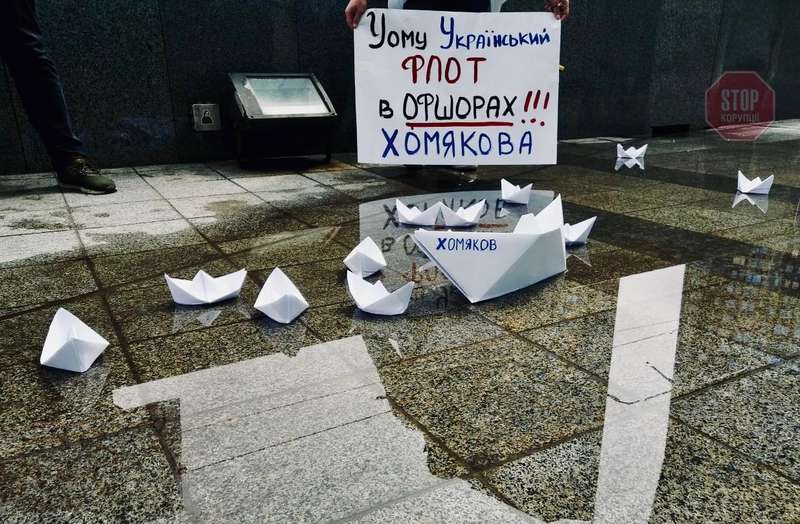 Чому Український
ФЛОТ
в ОФШОРАХ!!!
ХОМЯКОВА
STOP
КОРУПЦІЇ
ХОМЯКОВ